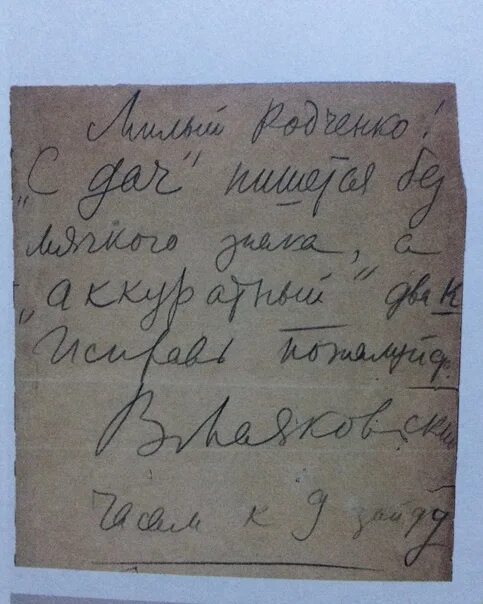 Милый Родченко!
„С дач" пишется без
мягкого знака, а
„аккуратный" два к
Исправь пожалуйста
ВМаяковский
Часам к 9 зайду